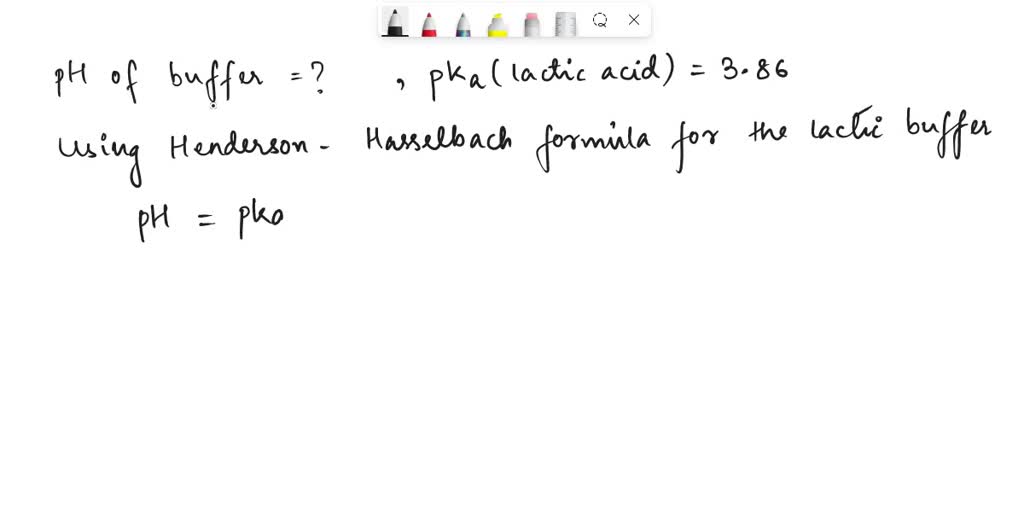 pH of buffer = ? , pka (lactic acid) = 3.86
using Henderson - Hasselbach formula for the lactic buffer
pH = pka